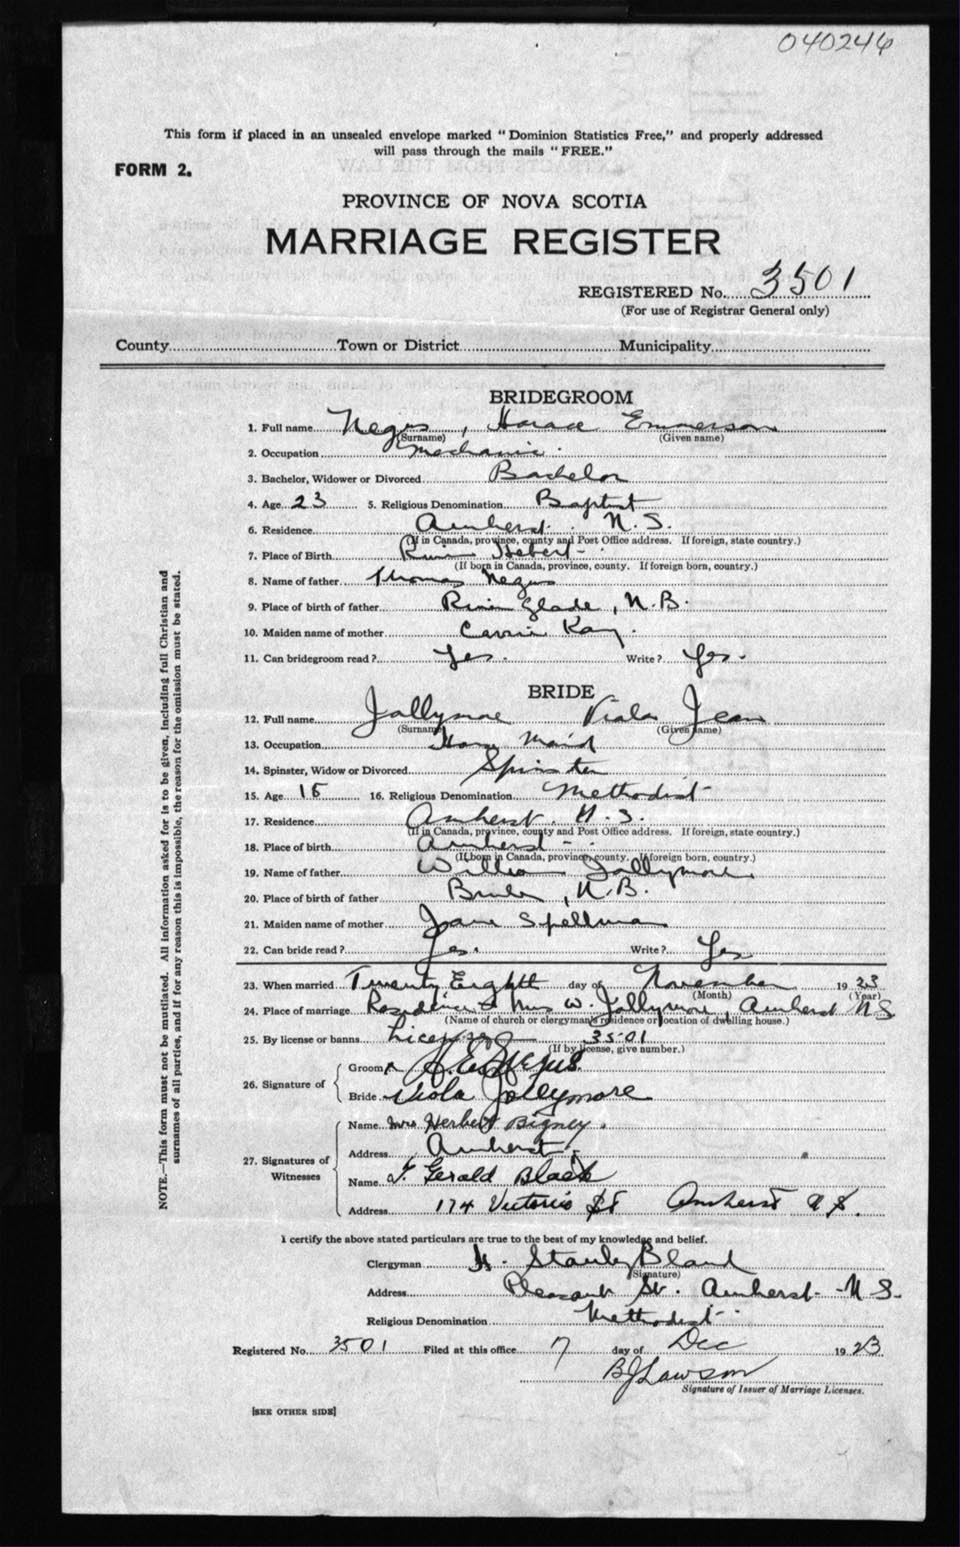 040246
This form if placed in an unsealed envelope marked "Dominion Statistics Free," and properly addressed
will pass through the mails "FREE."
FORM 2.
PROVINCE OF NOVA SCOTIA
MARRIAGE REGISTER
REGISTERED No. 3501
(For use of Registrar General only)
County Town or District Municipality
BRIDEGROOM
1. Full name Negus, Horace Emmerson
(Surname) (Given name)
2. Occupation Mechanic
3. Bachelor, Widower or Divorced Bachelor
4. Age 23 5. Religious Denomination Baptist
6. Residence Amherst N.S.
(If in Canada, province, county and Post Office address. If foreign, state country.)
7. Place of Birth River Hebert
(If born in Canada, province, county. If foreign born, country.)
8. Name of father Thomas Negus
9. Place of birth of father River Glade, N.B.
10. Maiden name of mother Carrie Kay
11. Can bridegroom read? Yes. Write? Yes.
BRIDE
12. Full name Jollymore Viola Jean
(Surname) (Given name)
13. Occupation House Maid
14. Spinster, Widow or Divorced Spinster
15. Age 16. Religious Denomination Methodist
17. Residence Amherst. N.S.
(If in Canada, province, county and Post Office address. If foreign, state country.)
18. Place of birth Amherst
(If born in Canada, province, county. If foreign born, country.)
19. Name of father William Jollymore
20. Place of birth of father , N.B.
21. Maiden name of mother Jane Spellman
22. Can bride read? Yes. Write? Yes
23. When married Twenty Eighth day of November 1923
(Month) (Year)
24. Place of marriage Residence of Mrs W. Jollymore, Amherst NS
(Name of church or clergyman's residence or location of dwelling house.)
25. By license or banns License 3501
(If by license, give number.)
26. Signature of
Groom H. E. Negus.
Bride Viola Jollymore
27. Signatures of Witnesses
Name Mrs Herbert Bigney.
Address Amherst
Name T. Gerald Black
Address 174 Victoria St Amherst N S.
I certify the above stated particulars are true to the best of my knowledge and belief.
Clergyman Stanley Bland
(Signature)
Address Pleasant St. Amherst N S.
Religious Denomination Methodist
Registered No. 3501 Filed at this office 7 day of Dec 1923
BJ Lawson
Signature of Issuer of Marriage Licenses.
[SEE OTHER SIDE]
NOTE.—This form must not be mutilated. All information asked for is to be given, including full Christian and
surnames of all parties, and if for any reason this is impossible, the reason for the omission must be stated.